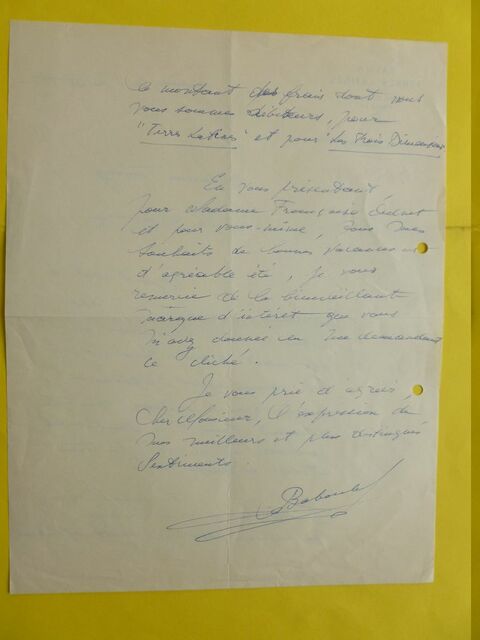 le montant des frais dont nous
vous sommes débiteurs, pour
"Terres Latines" et pour "Les Trois Dimensions
En vous présentant
pour Madame Françoise
et pour vous-même, tous mes
souhaits de bonnes vacances et
d'agréable été, je vous
remercie de la bienveillante
marque d'intérêt que vous
m'avez donnée en me demandant
ce cliché.
Je vous prie d'agréer,
cher Monsieur, l'expression de
mes meilleurs et plus distingués
sentiments